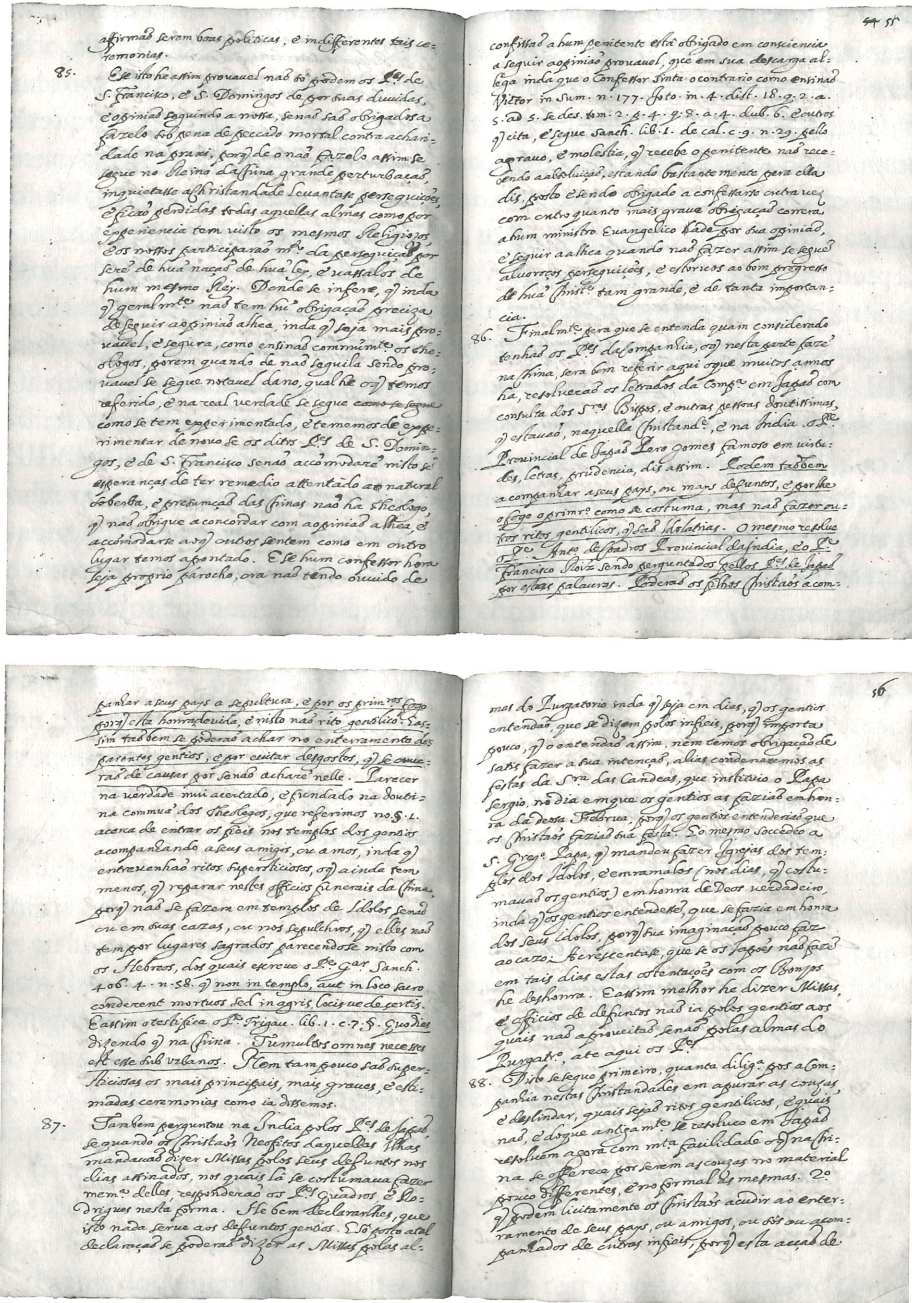 affirmaõ serem boas politicas, e indifferentes tais ce-
remonias.
85. E se isto he assim prouauel naõ só podem os P.es de
S. Francisco, e S. Domingos depor suas duuidas,
e opiniaõ seguindo a nossa, senaõ saõ obrigados a
fazelo sob pena de peccado mortal contra a chari-
dade na praxi, porq̃ de o naõ fazelo assim se
segue no Reino da China grande perturbacaõ,
inquietasse a Christandade leuantaõse perseguicões,
e ficaõ perdidas todas aquellas almas como por
experiencia tem visto os mesmos Religiozos,
e os nossos participaraõ m.to da perseguiçaõ por
serẽ de huã naçaõ de huã ley, e vassalos de
hum mesmo Rey. Donde se infere, q̃ inda
q̃ geralm.te naõ tem hũ obrigaçaõ preciza
de seguir a opiniaõ alhea, inda q̃ seja mais pro-
uauel, e segura, como ensinaõ commum.te os The-
ologos, porem quando de naõ seguila sendo pro-
uauel se segue notauel dano, qual he o q̃ temos
referido, e na real verdade se segue como se segue
como se tem experimentado, e tememos de expe-
rimentar de nouo se os ditos P.es de S. Domin-
gos, e de S. Francisco senaõ acõmodarẽ nisto sẽ
esperanças de ter remedio attentado ao natural
soberba, e presumçaõ das Chinas naõ ha Theologo,
q̃ naõ obrique a concordar com a opiniaõ alhea, e
accõmodarse ao q̃ outros sentem como em outro
lugar temos apontado. E se hum confessor hora
seja proprio parocho, ora naõ tendo ouuido de
54 55
confissaõ a hum penitente está obrigado em consciencia
a seguir a opiniaõ prouauel, que em sua descarga al-
lega inda que o Confessor sinta o contrario como ensinaõ
Victor in Sum. n. 177. Soto in. 4. dist. 18. q. 2. a.
5. ad 5. Sedes. tom. 2. p. 4. q. 8. a. 4. dub. 6. e outros
q̃ cita, e segue Sanch. lib. 1. de cal. c. 9. n. 29. pello
agrauo, e molestia, q̃ recebe o penitente naõ rece-
bendo a absoluiçaõ, estando bastantemente pera ella
disposto e sendo obrigado a confessarse outra vez
com outro quanto mais graue obrigaçaõ correrá
a hum ministro Euangelico ceder por sua opiniaõ,
e seguir a alhea quando naõ fazer assim se seguẽ
aluoroços perseguições, e estoruos ao bom progresso
de huã Christ.de tam grande, e de tanta importan-
cia.
86. Finalm.te pera que se entenda quam considerado
tenhaõ os P.es da Companhia, o q̃ nesta parte fazẽ
na China, será bem referir aqui o que muitos annos
ha, resolueraõ os letrados da Comp.a em Japaõ com
consulta dos S.res Bispos, e outras pessoas doutissimas,
q̃ estauaõ, naquella Christand.e, e na India. o P.e
Prouincial de Japaõ Pero Gomes famoso em virtu-
des, letras, prudencia, dis assim. Podem taõbem
acompanhar a seus pays, ou mays defuntos, e por lhe
o fogo o primr.o como se costuma, mas naõ fazer ou-
tros ritos gentilicos, q̃ saõ idolatrias. O mesmo resolue
o P.e Ant.o de Quadros Prouincial da India, e o P.e
Francisco Roiz sendo perguntados pellos P.es de Japaõ
por estas palauras. Poderaõ os filhos Christaõs acom-
panhar a seus pays a sepultura, e por os primr.os fogo
porq̃ esta honra deuida, e nisto naõ rito gentilico. E as-
sim taõbem se poderaõ achar no enterramento dos
parentes gentios, e por euitar desgostos, q̃ se ouue-
raõ de causar por senaõ acharẽ nelle. Parecer
na verdade mui acertado, e fundado na doutri-
na commua dos Theologos, que referimos no §. 1.
acerca de entrar os fieis nos templos dos gentios
acompanhando a seus amigos, ou amos, inda q̃
entreuenhaõ ritos supersticiosos, o q̃ ainda tem
menos, q̃ reparar nestes officios funerais da China,
porq̃ naõ se fazem em templos de Idolos senaõ
ou em suas cazas, ou nos sepulchros, q̃ elles naõ
tem por lugares sagrados parecendose nisto com
os Hebreos, dos quais escreue o P.e Gar. Sanch.
406. 4. n. 58. q̃ non in templo, aut in loco sacro
conderent mortuos sed in agris, locisue desertis.
E assim o testifica o P.e Trigau. lib. 1. c. 7. §. Quo dies
dizendo q̃ na China. Tumulos omnes necesses
est esse sub urbanos. Nem tampouco saõ super-
sticiosas os mais principais, mais graues, e esti-
madas ceremonias como ia dissemos.
87. Tambem perguntou na India polos P.es de Japaõ,
se quando os Christaõs Neofitos daquellas Ilhas
mandauaõ dizer Missas polos seus defuntos nos
dias assinados, nos quais lá se costumaua fazer
mem.a delles, responderaõ os P.es Quadros, e Ro-
drigues nesta forma. He bem declaranhes, que
isto nada serue aos defuntos gentios. E só posto a tal
declaraçaõ se poderaõ dizer as Missas polas al-
56
mas do Purgatorio inda q̃ seja em dias, q̃ os gentios
entendaõ, que se dizem polos infieis, porq̃ importa
pouco, q̃ o entendaõ assim, nem temos obrigaçaõ de
satisfazer a sua intençaõ, alias condenaremos as
festas da Sra. das Candeas, que instituio o Papa
Sergio, no dia em que os gentios as faziaõ em hon-
ra da deosa Februa, porq̃ os gentios entenderiaõ que
os Christaõs faziaõ sua festa. E o mesmo soccedeo a
S. Greg.o Papa, q̃ mandou fazer Igrejas dos tem-
plos dos Idolos, e enramalos (nos dias, q̃ costu-
mauaõ os gentios) em honra de Deos verdadeiro,
inda q̃ os gentios entendessẽ, que se fazia em honra
dos seus idolos, porq̃ sua imaginaçaõ pouco faz
ao cazo. Acrescentase, que se os Japões naõ fazẽ
em tais dias estas ostentações com os Bonzos
he deshonra. E assim melhor he dizer Missas,
e officios de defuntos naõ ia polos gentios aos
quais naõ aproueitaõ senaõ polas almas do
Purgatr.o ate aqui os P.es
88. Disto se segue primeiro, quanta dilig.a pos a Com-
panhia nestas Christandades em apurar as couzas
e deslindar, quais sejaõ ritos gentilicos, e quais
naõ, e do que antigam.te se resolueo em Japaõ
resoluem agora com m.ta facilidade o q̃ na Chi-
na se offerece por serem as couzas no material
pouco differentes, e no formal as mesmas. 2.o
q̃ podem licitamente os Christaõs acudir ao enter-
ramento de seus pays, ou amigos, ou sós ou acom-
panhados de outros infieis, porq̃ esta acçaõ de